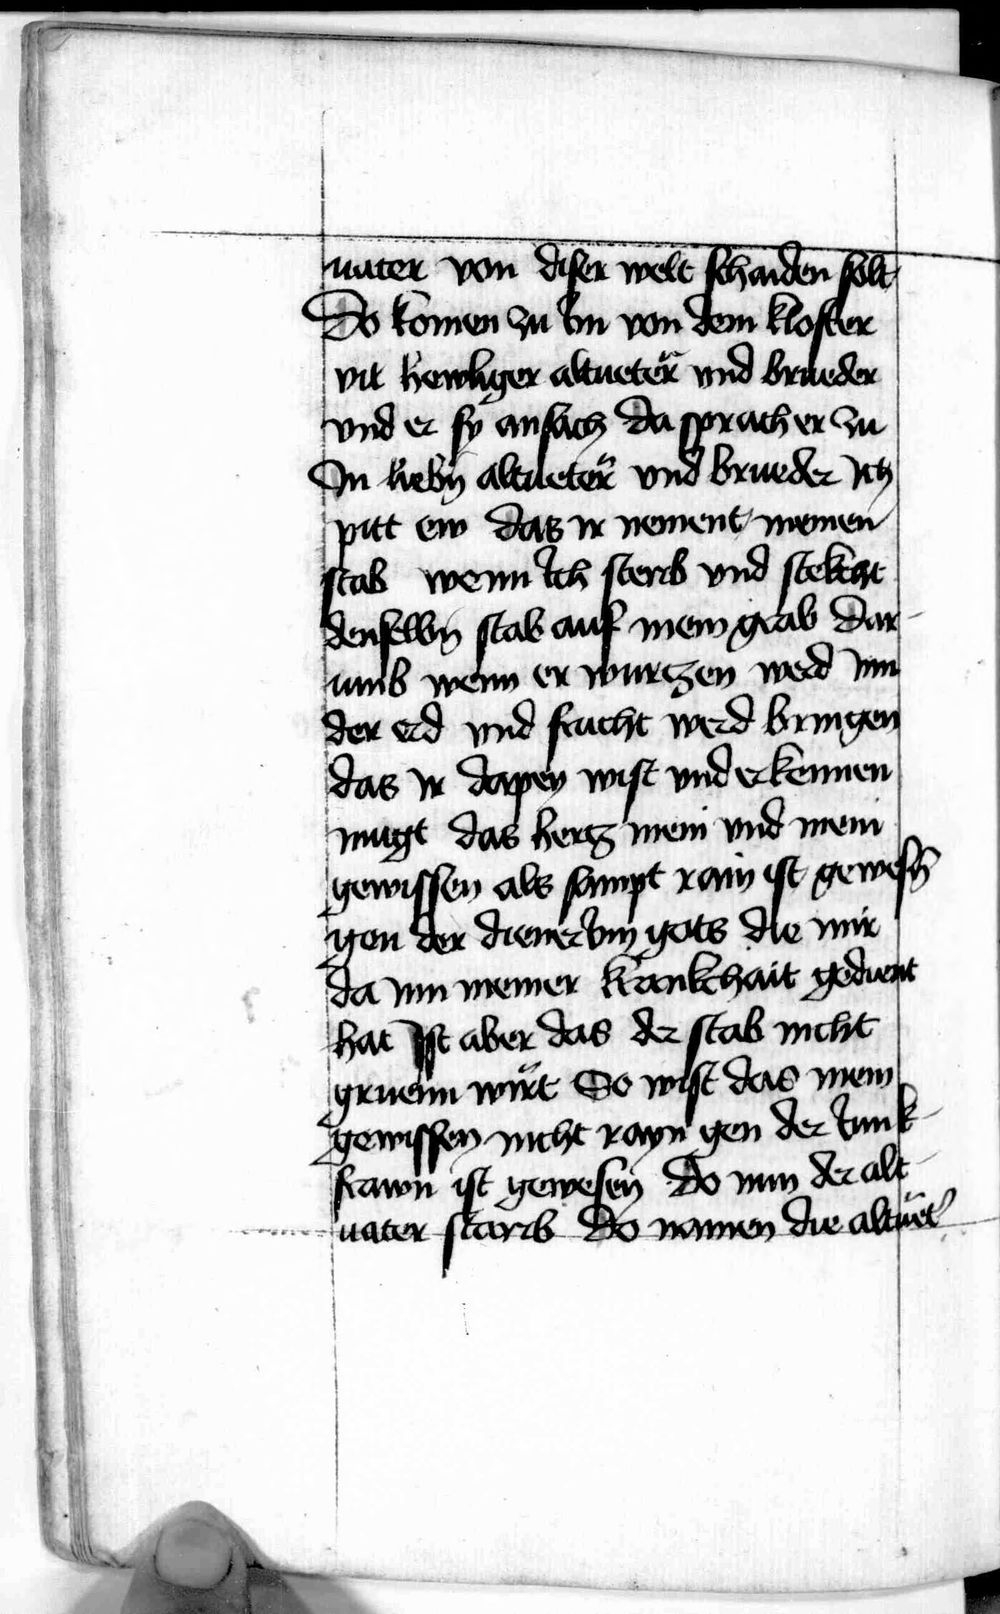 uater von diser welt schaiden solt
Do komen zu Im von dem kloster
vil hewliger altueter und brueder
vnd er sy ansach Da sprach er zu
In liebn̄ altueter vnd brueder Ich
pitt ew das ir nement meinen
stab wenn Ich sterb vnd stekcht
denselbn̄ stab auf mein grab Dar-
umb wenn er wurtzen werd Inn
der erd vnd frucht werd bringen
das Ir dapey wist vnd erkennen
mugt das hertz mein vnd mein
gewissen als sampt rain ist gewesn̄
gen der dienerInn gots die mir
da Inn meiner krankchait gedient
hat Ist aber das der stab nicht
gruenn wirt So wist das mein
gewissen nicht rayn gen der Junk-
frawn ist gewesen Do nun der alt-
uater starb Do namen die altuet